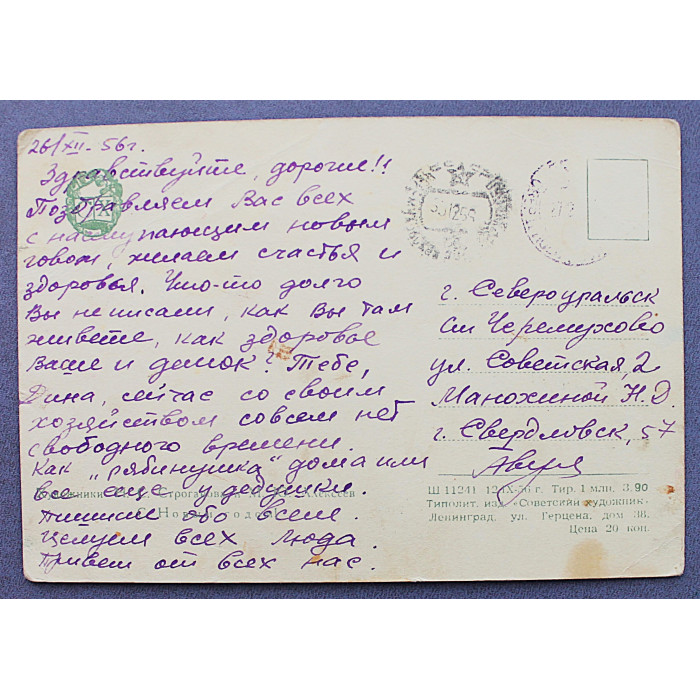 26/XII-56г.
Здравствуйте, дорогие!!
Поздравляем Вас всех
с наступающим новым
годом, желаем счастья и
здоровья. Что-то долго
Вы не писали, как Вы там
живете, как здоровье
Ваше и деток? Тебе,
Дина, сейчас со своим
хозяйством совсем нет
свободного времени.
Как "рябинушка" дома или
все еще у дедушки.
Художники Строганова Алексеев
Пишите обо всем.
С Новым годом!
Целуем всех Люда.
Привет от всех нас.
г. Североуральск
см Черемухово
ул. Советская, 2
Манохиной Н.Д.
г. Свердловск, 57
Ш 11241 12-IX-56 г. Тир. 1 млн. З.90
Типолит. изд. «Советский художник»
Ленинград, ул. Герцена, дом 38.
Цена 20 коп.